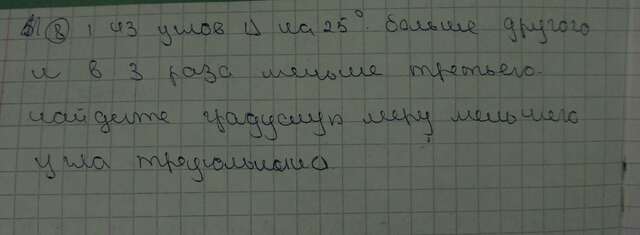 ⑧ 1 из углов △ на 25° больше другого
и в 3 раза меньше третьего.
найдите градусную меру меньшего
угла треугольника